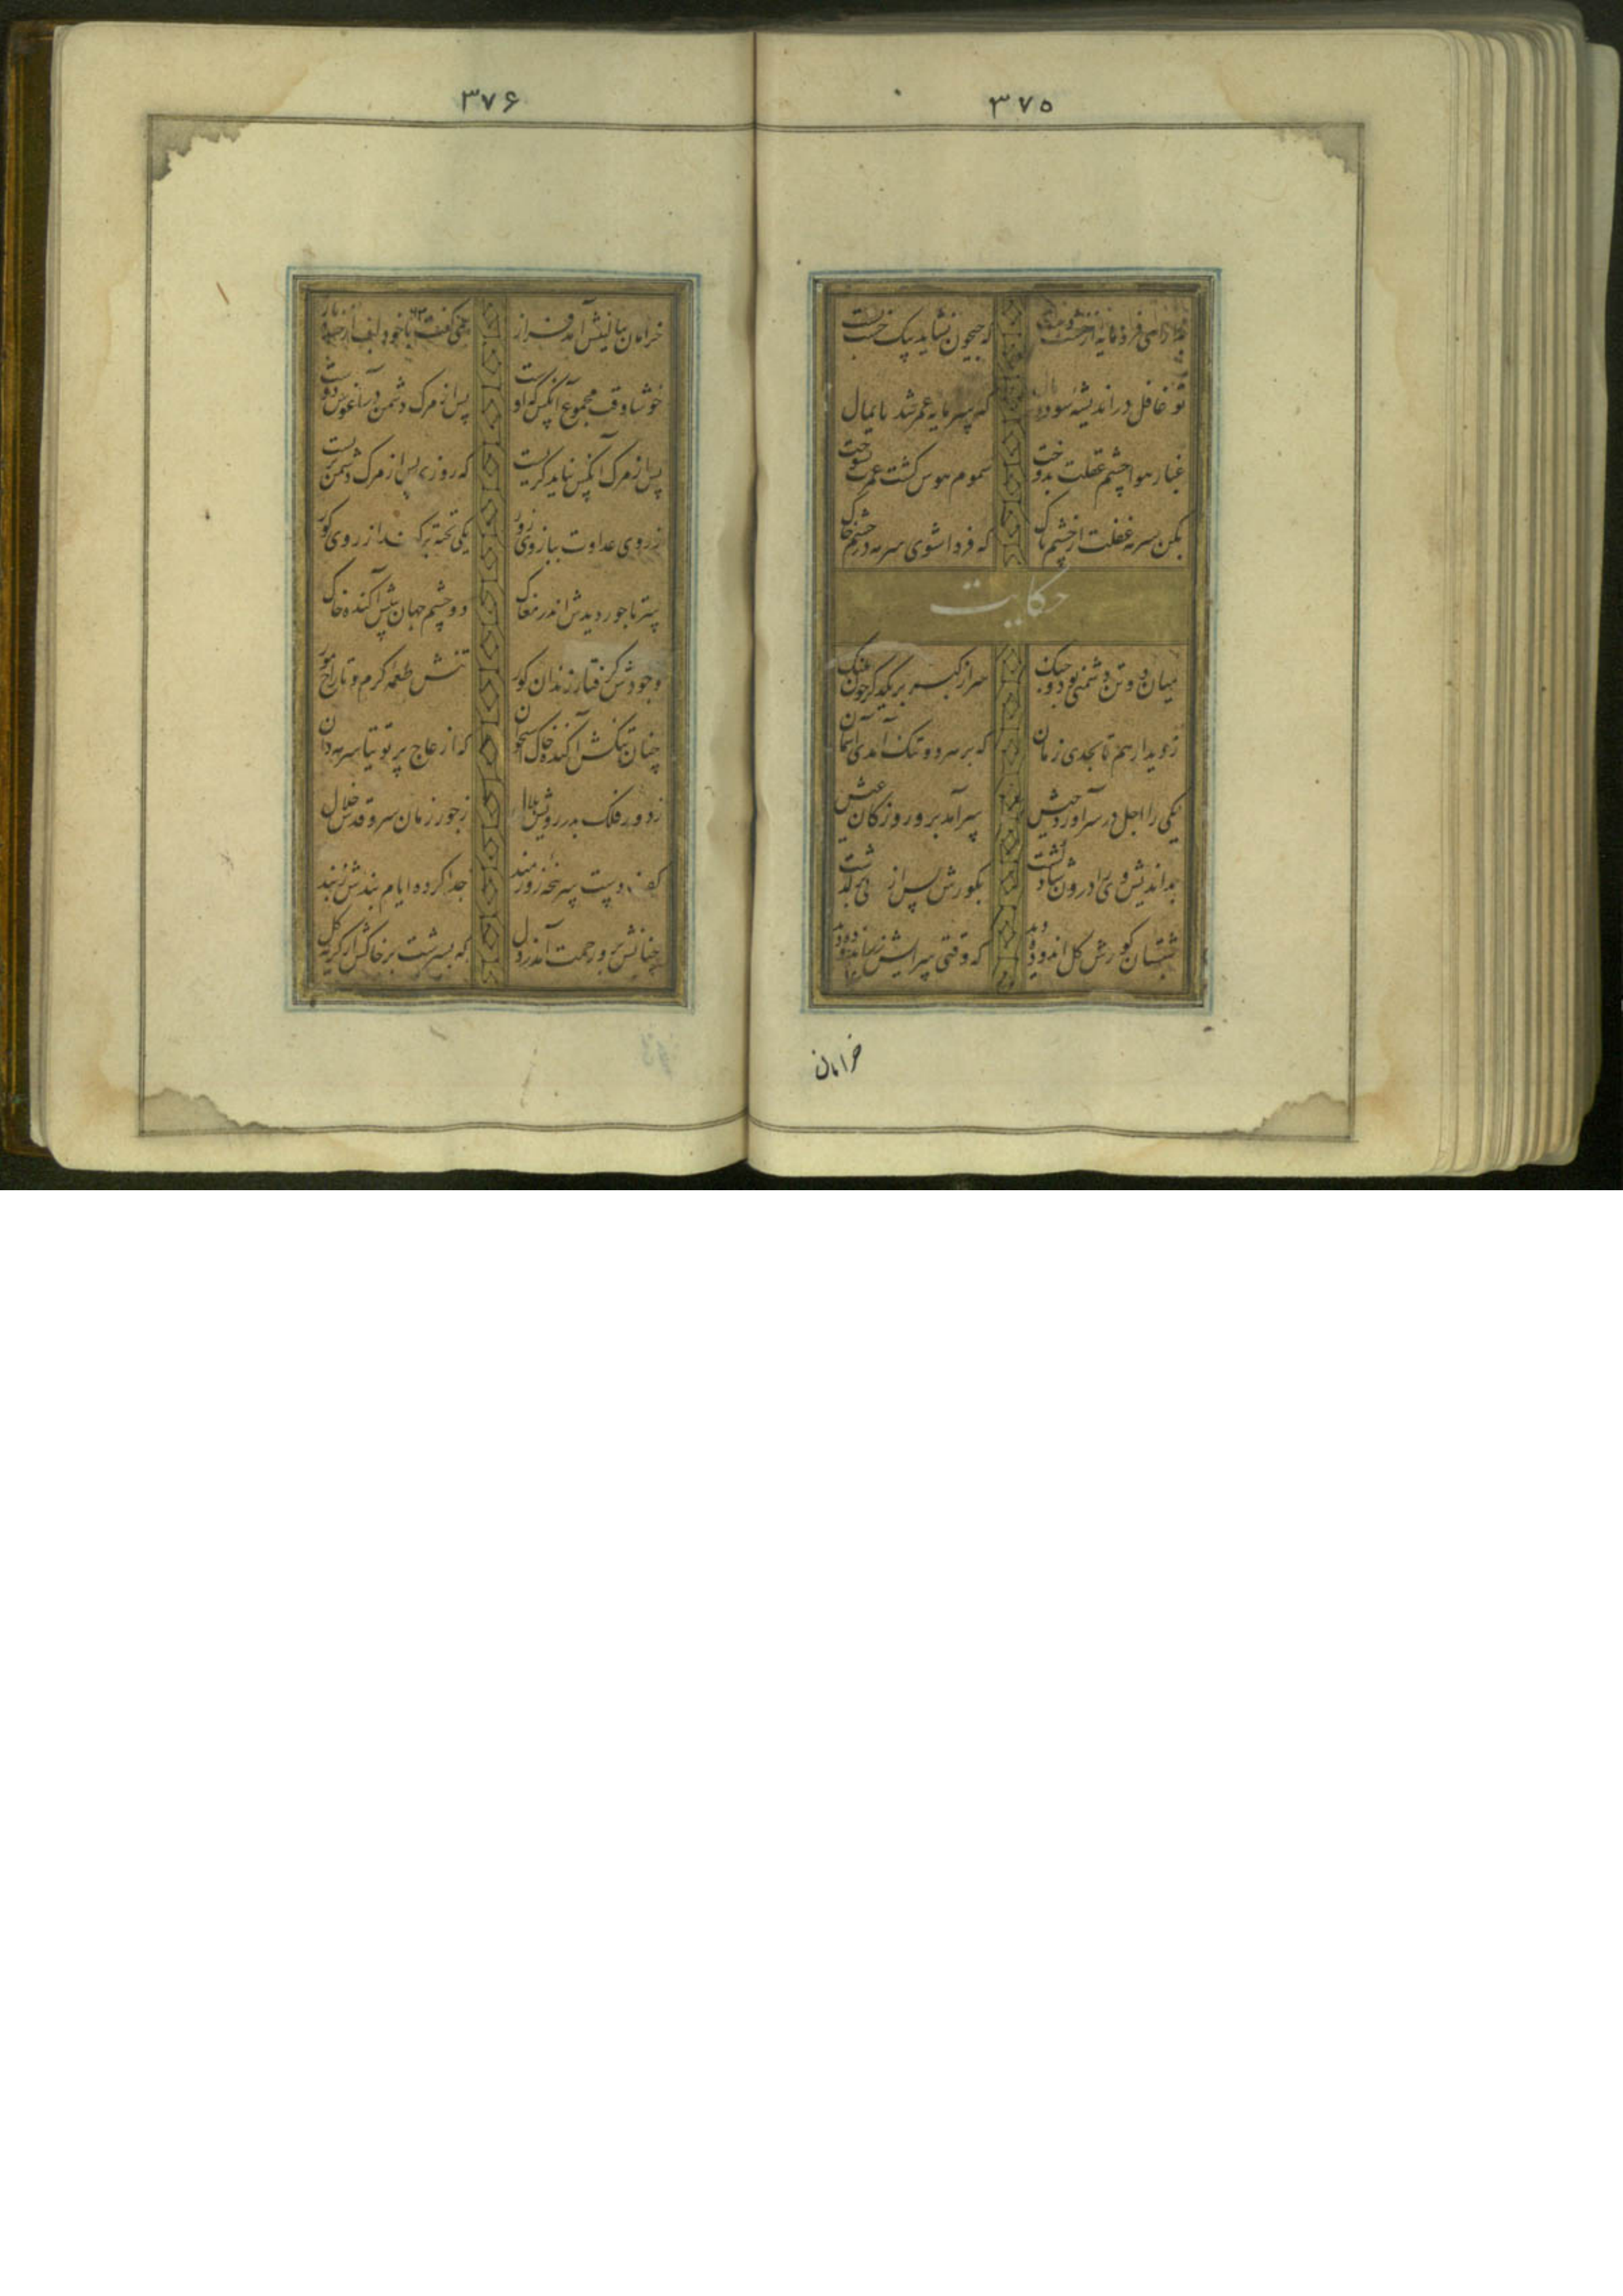 ۳۷۵
که جیحون نشاید بیک خشت بست
تو غافل در اندیشه سود و مال که سرمایه عمر شد پایمال
غبار هوا چشم عقلت بدوخت سموم هوس کشت عمرت بسوخت
بکن سرمه غفلت از چشم پاک که فردا شوی سرمه در چشم خاک
حکایت
میان دو تن دشمنی بود و جنک سر از کبر بر یکدکر چون پلنک
ز دیدار هم تا بحدی رمان که بر هر دو تنک آمدی آسمان
یکی را اجل در سر آورد جیش سر آمد برو روزکاران عیش
بداندیش وی را درون شاد کشت بکورش پس از مدتی بر کذشت
شبستان کورش کل اندوده دید که وقتی سرایش زراندوده دید
خرامان
۳۷۶
خرامان ببالینش آمد فراز همی کفت با خود لب از خنده باز
خوشا وقت مجموع آنکس که اوست پس از مرک دشمن در آغوش دوست
پس از مرک آنکس نباید کریست که روزی پس از مرک دشمن بزیست
ز روی عداوت ببازوی زور یکی تخته برکندش از روی کور
سر تاجور دیدش اندر مغاک دو چشم جهان بینش آکنده خاک
وجودش کرفتار زندان کور تنش طعمه کرم و تاراج مور
چنان تنکش آکنده خاک استخوان که از عاج پر توتیا سرمه دان
ز دور فلک بدر رویش هلال ز جور زمان سرو قدش خلال
کف دست و سرپنجه زورمند جدا کرده ایام بندش ز بند
چنانش برو رحمت آمد ز دل که بسرشت بر خاکش از کریه کل